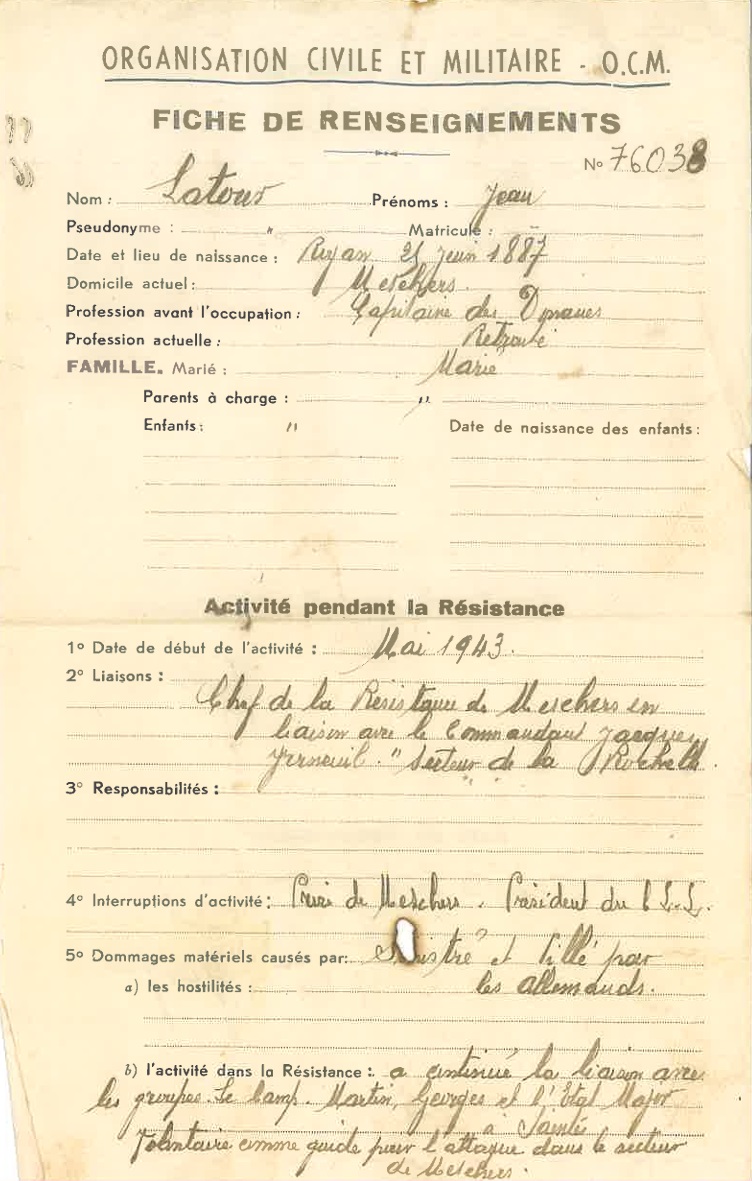 ORGANISATION CIVILE ET MILITAIRE - O.C.M.
FICHE DE RENSEIGNEMENTS
No 76038
Nom : Latour Prénoms : Jean
Pseudonyme : " Matricule : -
Date et lieu de naissance : Royan 21 juin 1887
Domicile actuel : Meschers.
Profession avant l'occupation : Capitaine des Douanes
Profession actuelle : Retraité
FAMILLE. Marié : Marié
Parents à charge : "
Enfants : " Date de naissance des enfants :
Activité pendant la Résistance
1° Date de début de l'activité : Mai 1943.
2° Liaisons :
Chef de la Résistance de Meschers en
liaison avec le Commandant Jacques
Verneuil. " Secteur de la Rochelle.
3° Responsabilités :
4° Interruptions d'activité : de Meschers. Président du C L.L.
5° Dommages matériels causés par : Sinistré et Pillé par
a) les hostilités : les allemands.
b) l'activité dans la Résistance : a continué la liaison avec
les groupes. Le Camp. Martin, Georges et l'Etat Major
à
Volontaire comme guide pour l'attaque dans le secteur
de Meschers.